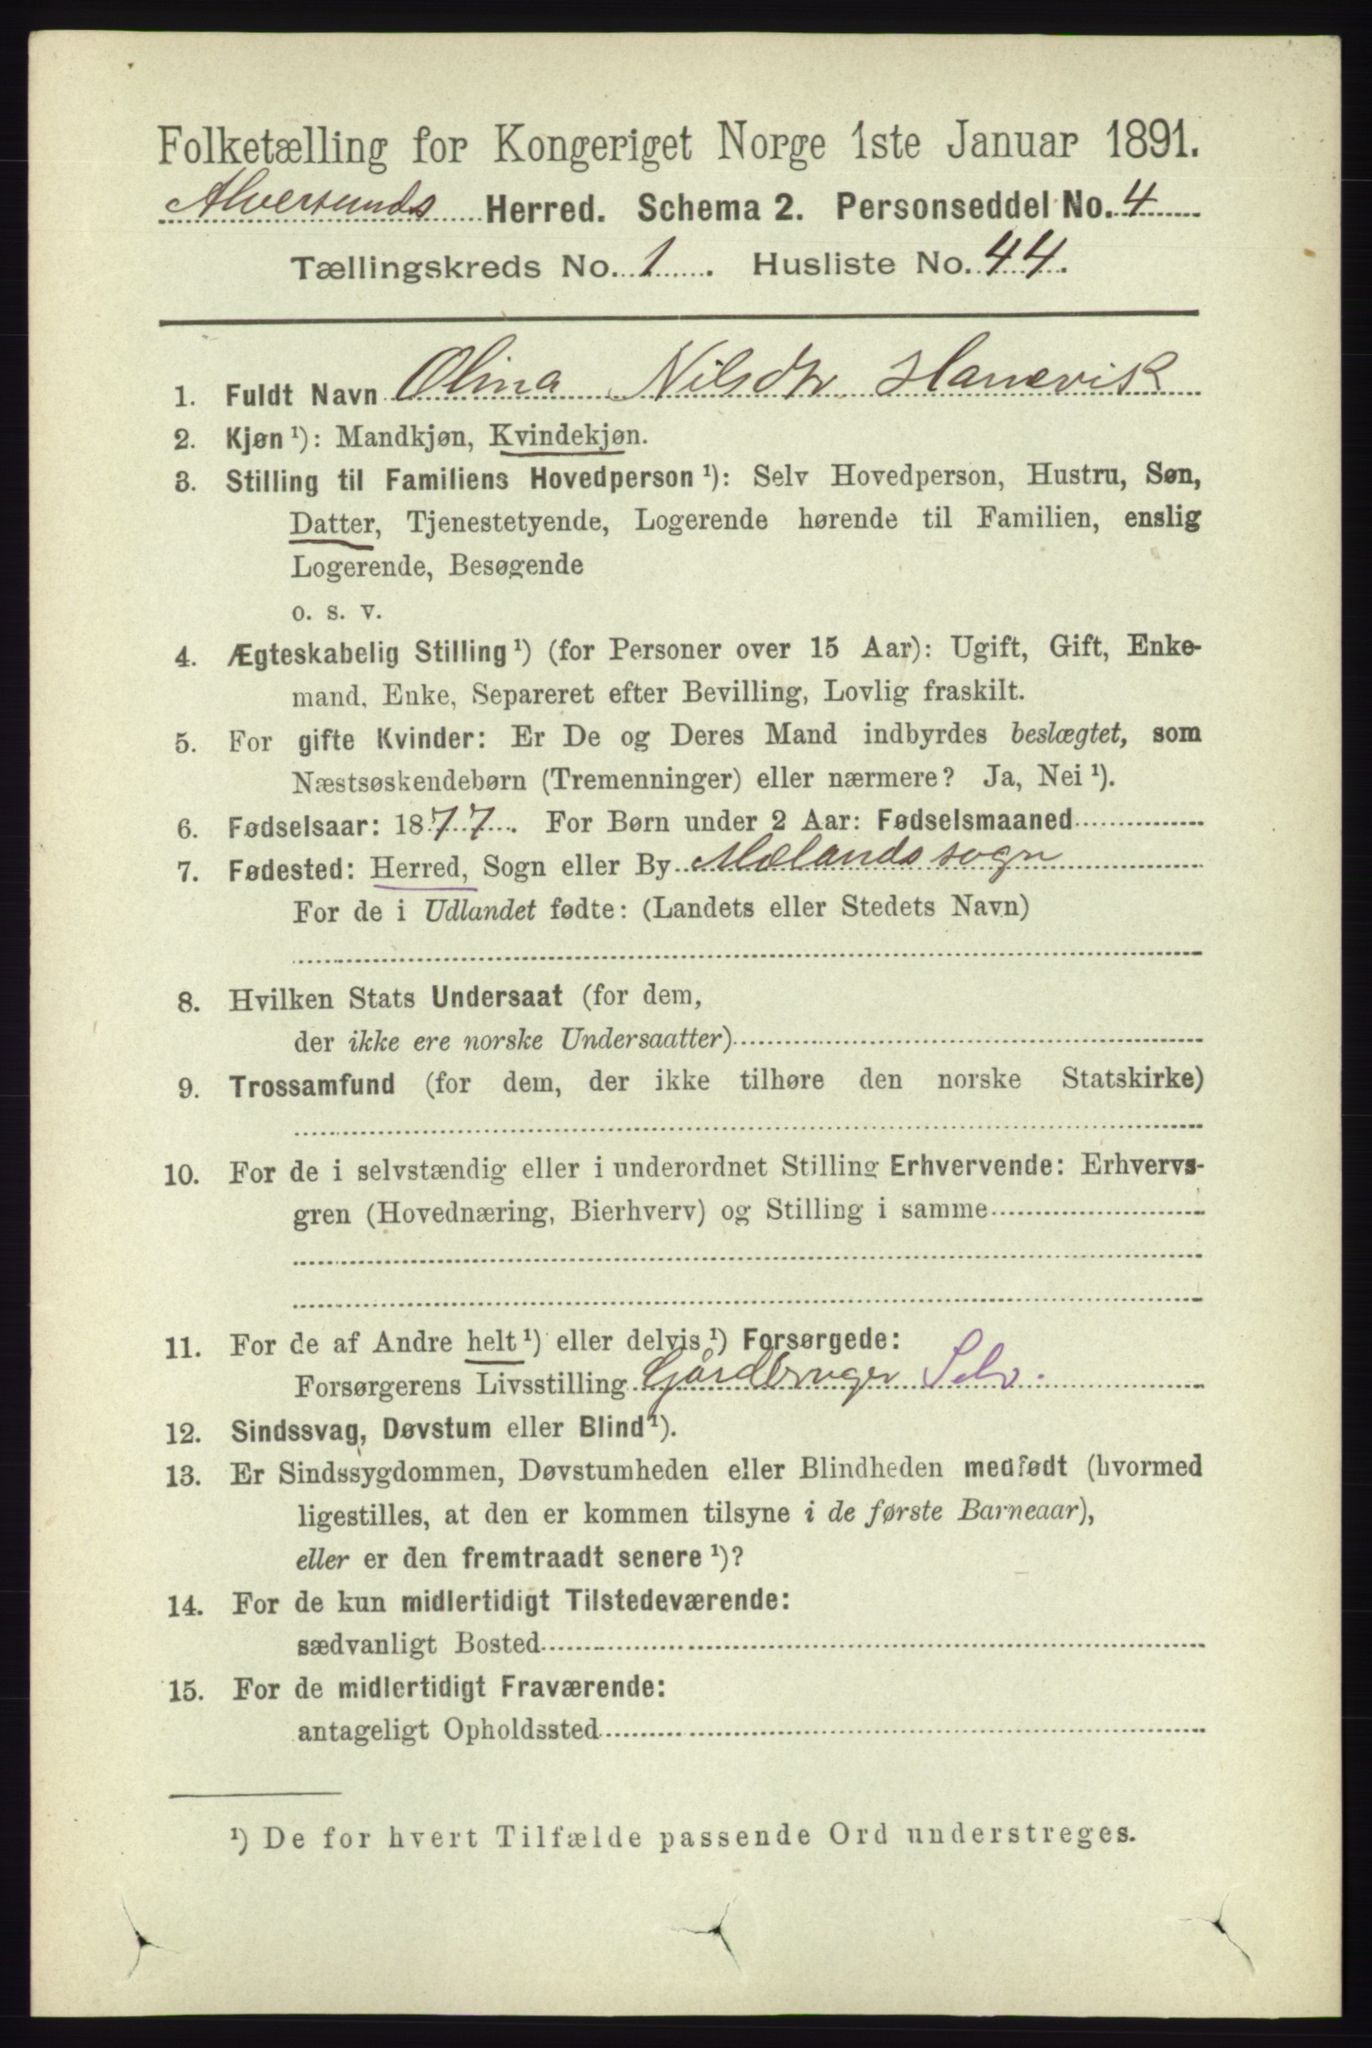 Folketælling for Kongeriget Norge 1ste Januar 1891.
Alversunds Herred. Schema 2. Personseddel No. 4
Tællingskreds No. 1. Husliste No. 44.
1. Fuldt Navn Olina Nilsdtr. Hanevik
2. Kjøn ¹): Mandkjøn, Kvindekjøn.
3. Stilling til Familiens Hovedperson ¹): Selv Hovedperson, Hustru, Søn,
Datter, Tjenestetyende, Logerende hørende til Familien, enslig
Logerende, Besøgende
o. s. v.
4. Ægteskabelig Stilling ¹) (for Personer over 15 Aar): Ugift, Gift, Enke-
mand, Enke, Separeret efter Bevilling, Lovlig fraskilt.
5. For gifte Kvinder: Er De og Deres Mand indbyrdes beslægtet, som
Næstsøskendebørn (Tremenninger) eller nærmere? Ja, Nei ¹).
6. Fødselsaar: 1877. For Børn under 2 Aar: Fødselsmaaned
7. Fødested: Herred, Sogn eller By Mælands sogn
For de i Udlandet fødte: (Landets eller Stedets Navn)
8. Hvilken Stats Undersaat (for dem,
der ikke ere norske Undersaatter)
9. Trossamfund (for dem, der ikke tilhøre den norske Statskirke)
10. For de i selvstændig eller i underordnet Stilling Erhvervende: Erhvervs-
gren (Hovednæring, Bierhverv) og Stilling i samme
11. For de af Andre helt ¹) eller delvis ¹) Forsørgede:
Forsørgerens Livsstilling Gårdbruger Selv.
12. Sindssvag, Døvstum eller Blind ¹).
13. Er Sindssygdommen, Døvstumheden eller Blindheden medfødt (hvormed
ligestilles, at den er kommen tilsyne i de første Barneaar),
eller er den fremtraadt senere ¹)?
14. For de kun midlertidigt Tilstedeværende:
sædvanligt Bosted
15. For de midlertidigt Fraværende:
antageligt Opholdssted
¹) De for hvert Tilfælde passende Ord understreges.